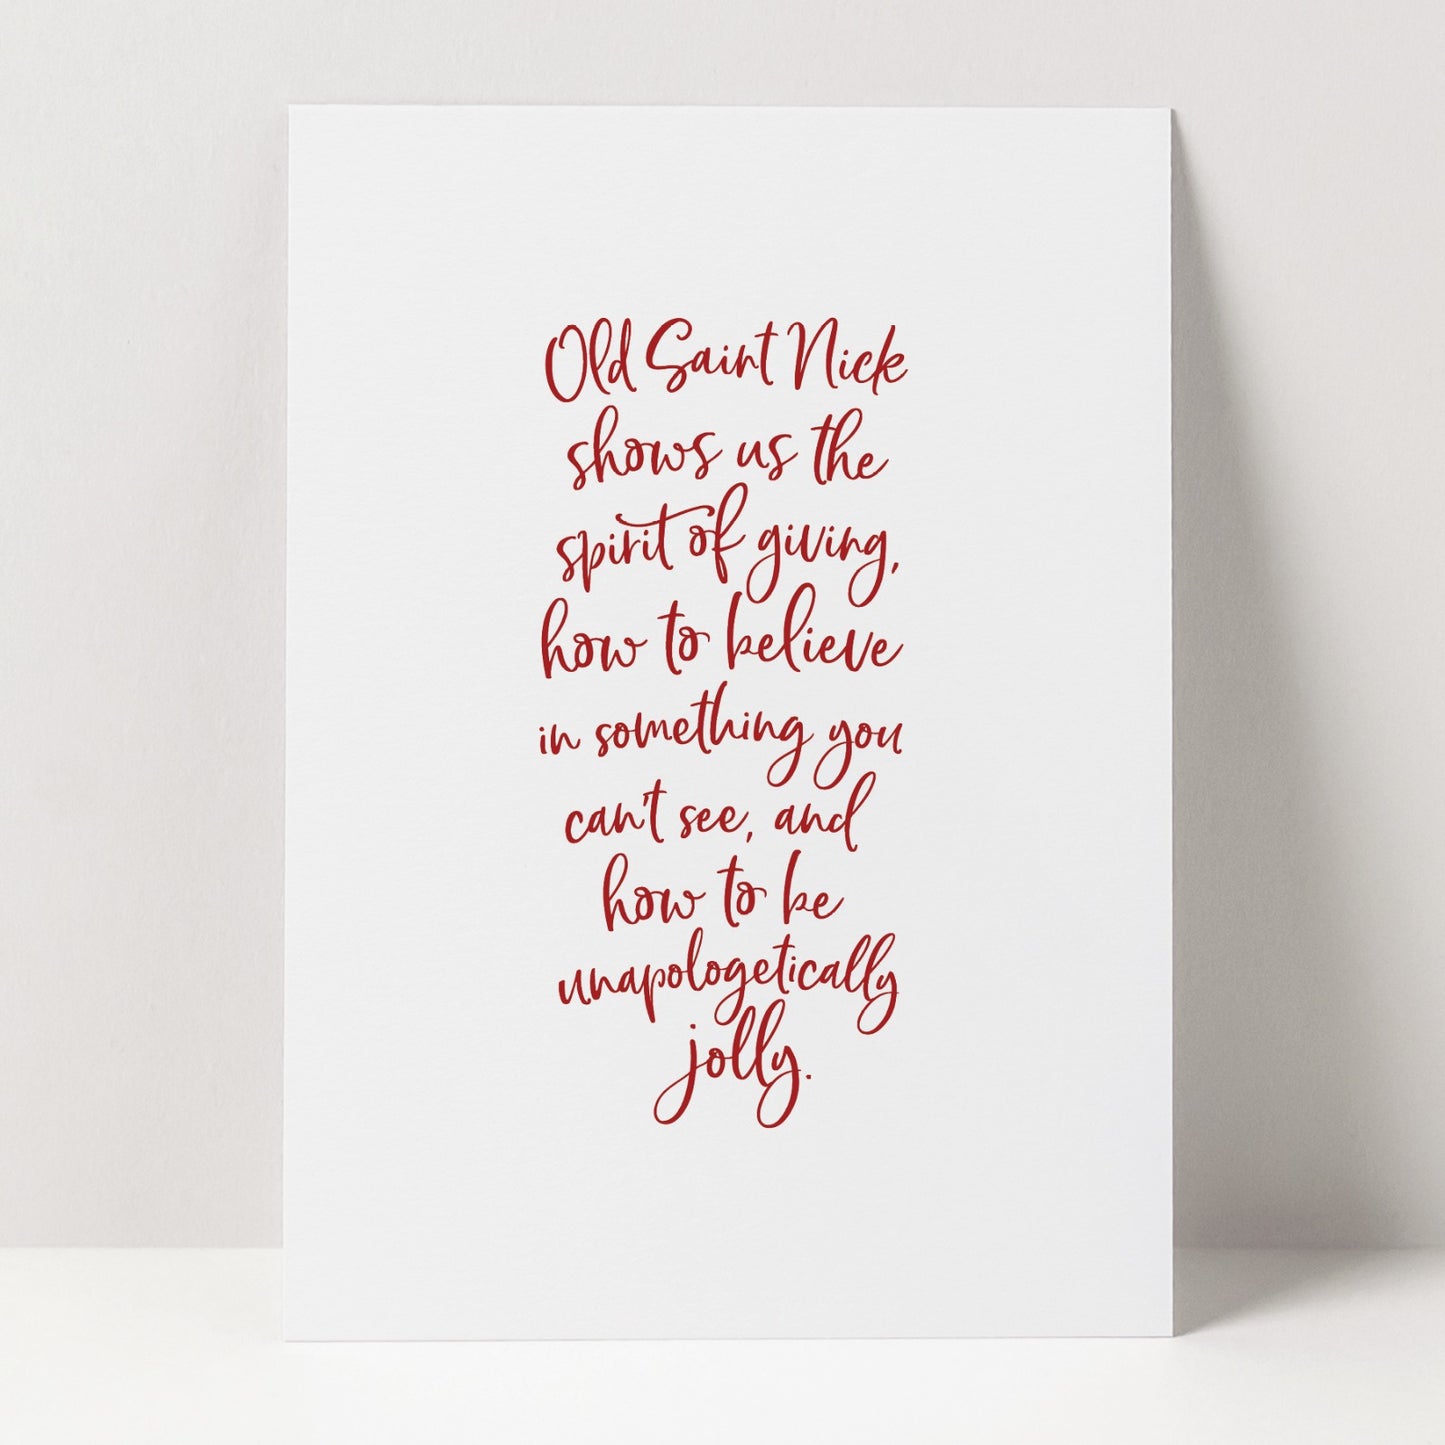 Old Saint Nick
shows us the
spirit of giving,
how to believe
in something you
can't see, and
how to be
unapologetically
jolly.